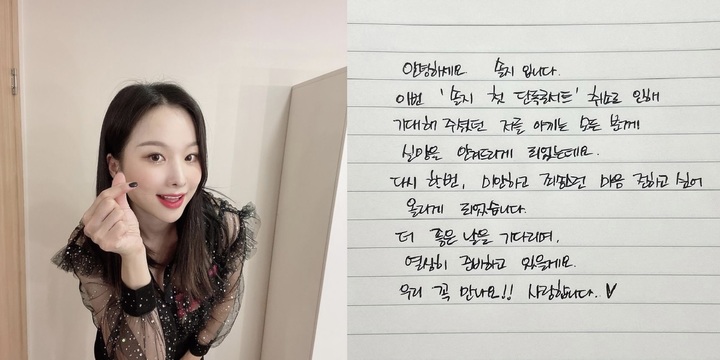 안녕하세요 솔지 입니다.
이번 '솔지 첫 단독콘서트' 취소로 인해
기대해 주셨던 저를 아끼는 모든 분께
실망을 안겨드리게 되었는데요.
다시 한번, 미안하고 죄송한 마음 전하고 싶어
올리게 되었습니다.
더 좋은 날을 기다리며,
열심히 준비하고 있을게요.
우리 꼭 만나요!! 사랑합니다. ♥